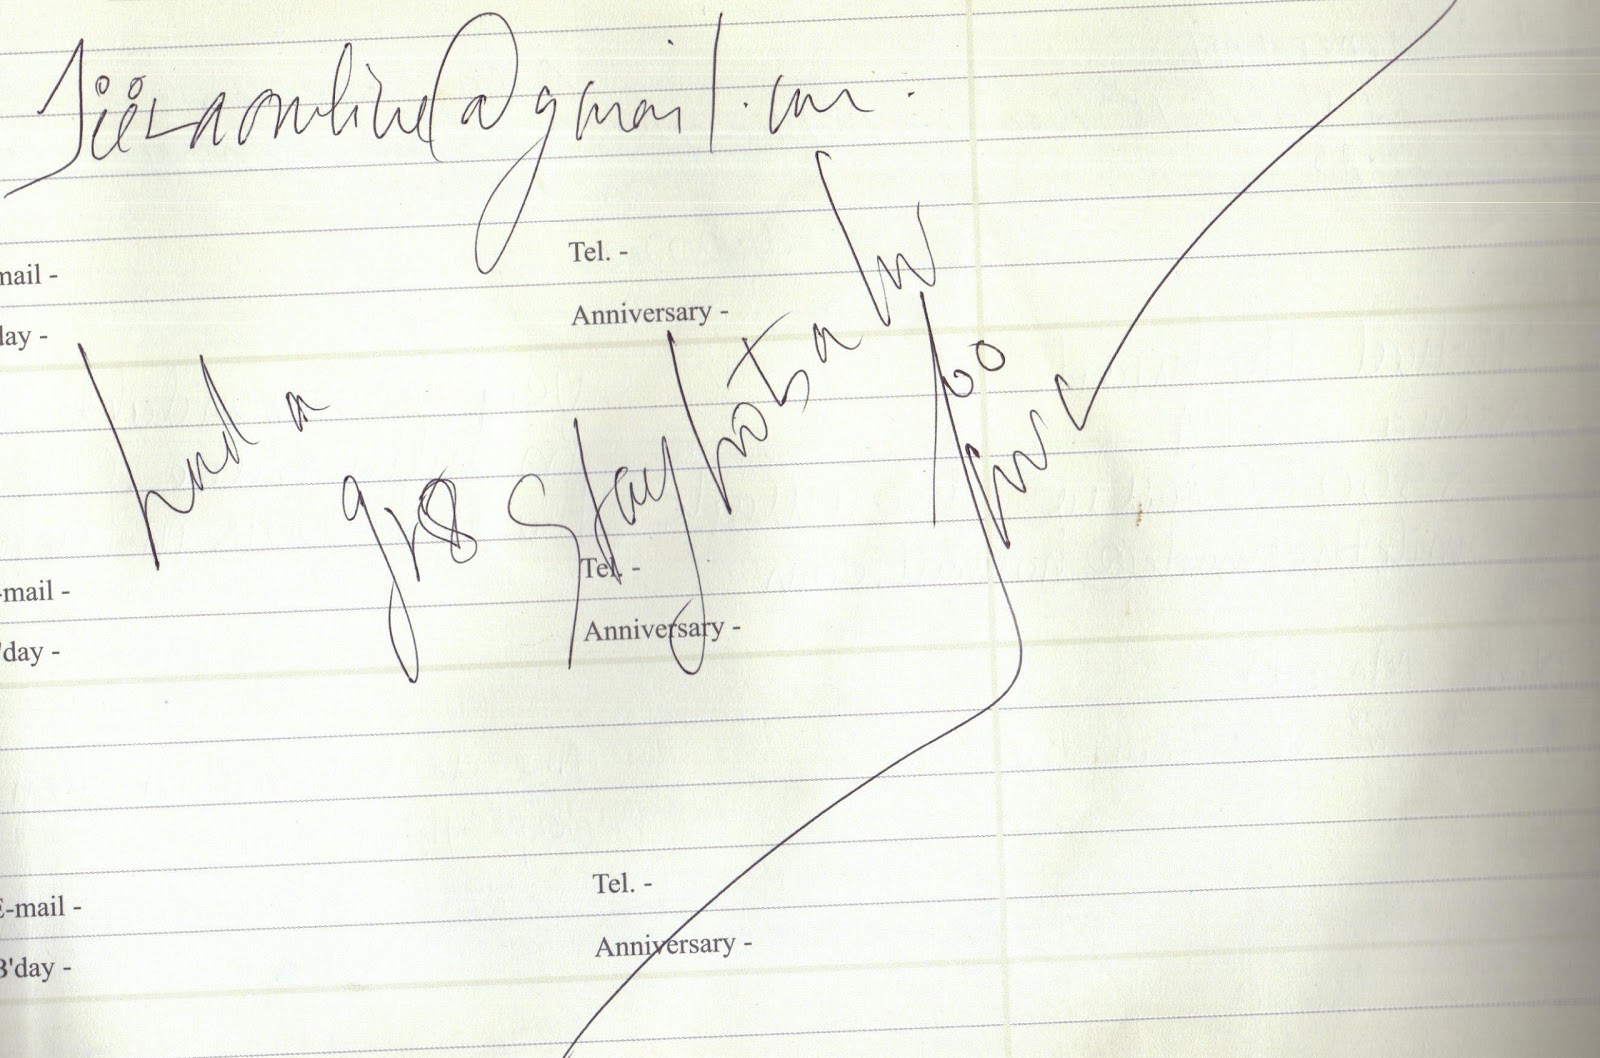 @gmail.com.
mail -
Tel. -
day -
Anniversary -
had a
gr8 stay hots a
too
-mail -
Tel. -
'day -
Anniversary -
E-mail -
Tel. -
B'day -
Anniversary -